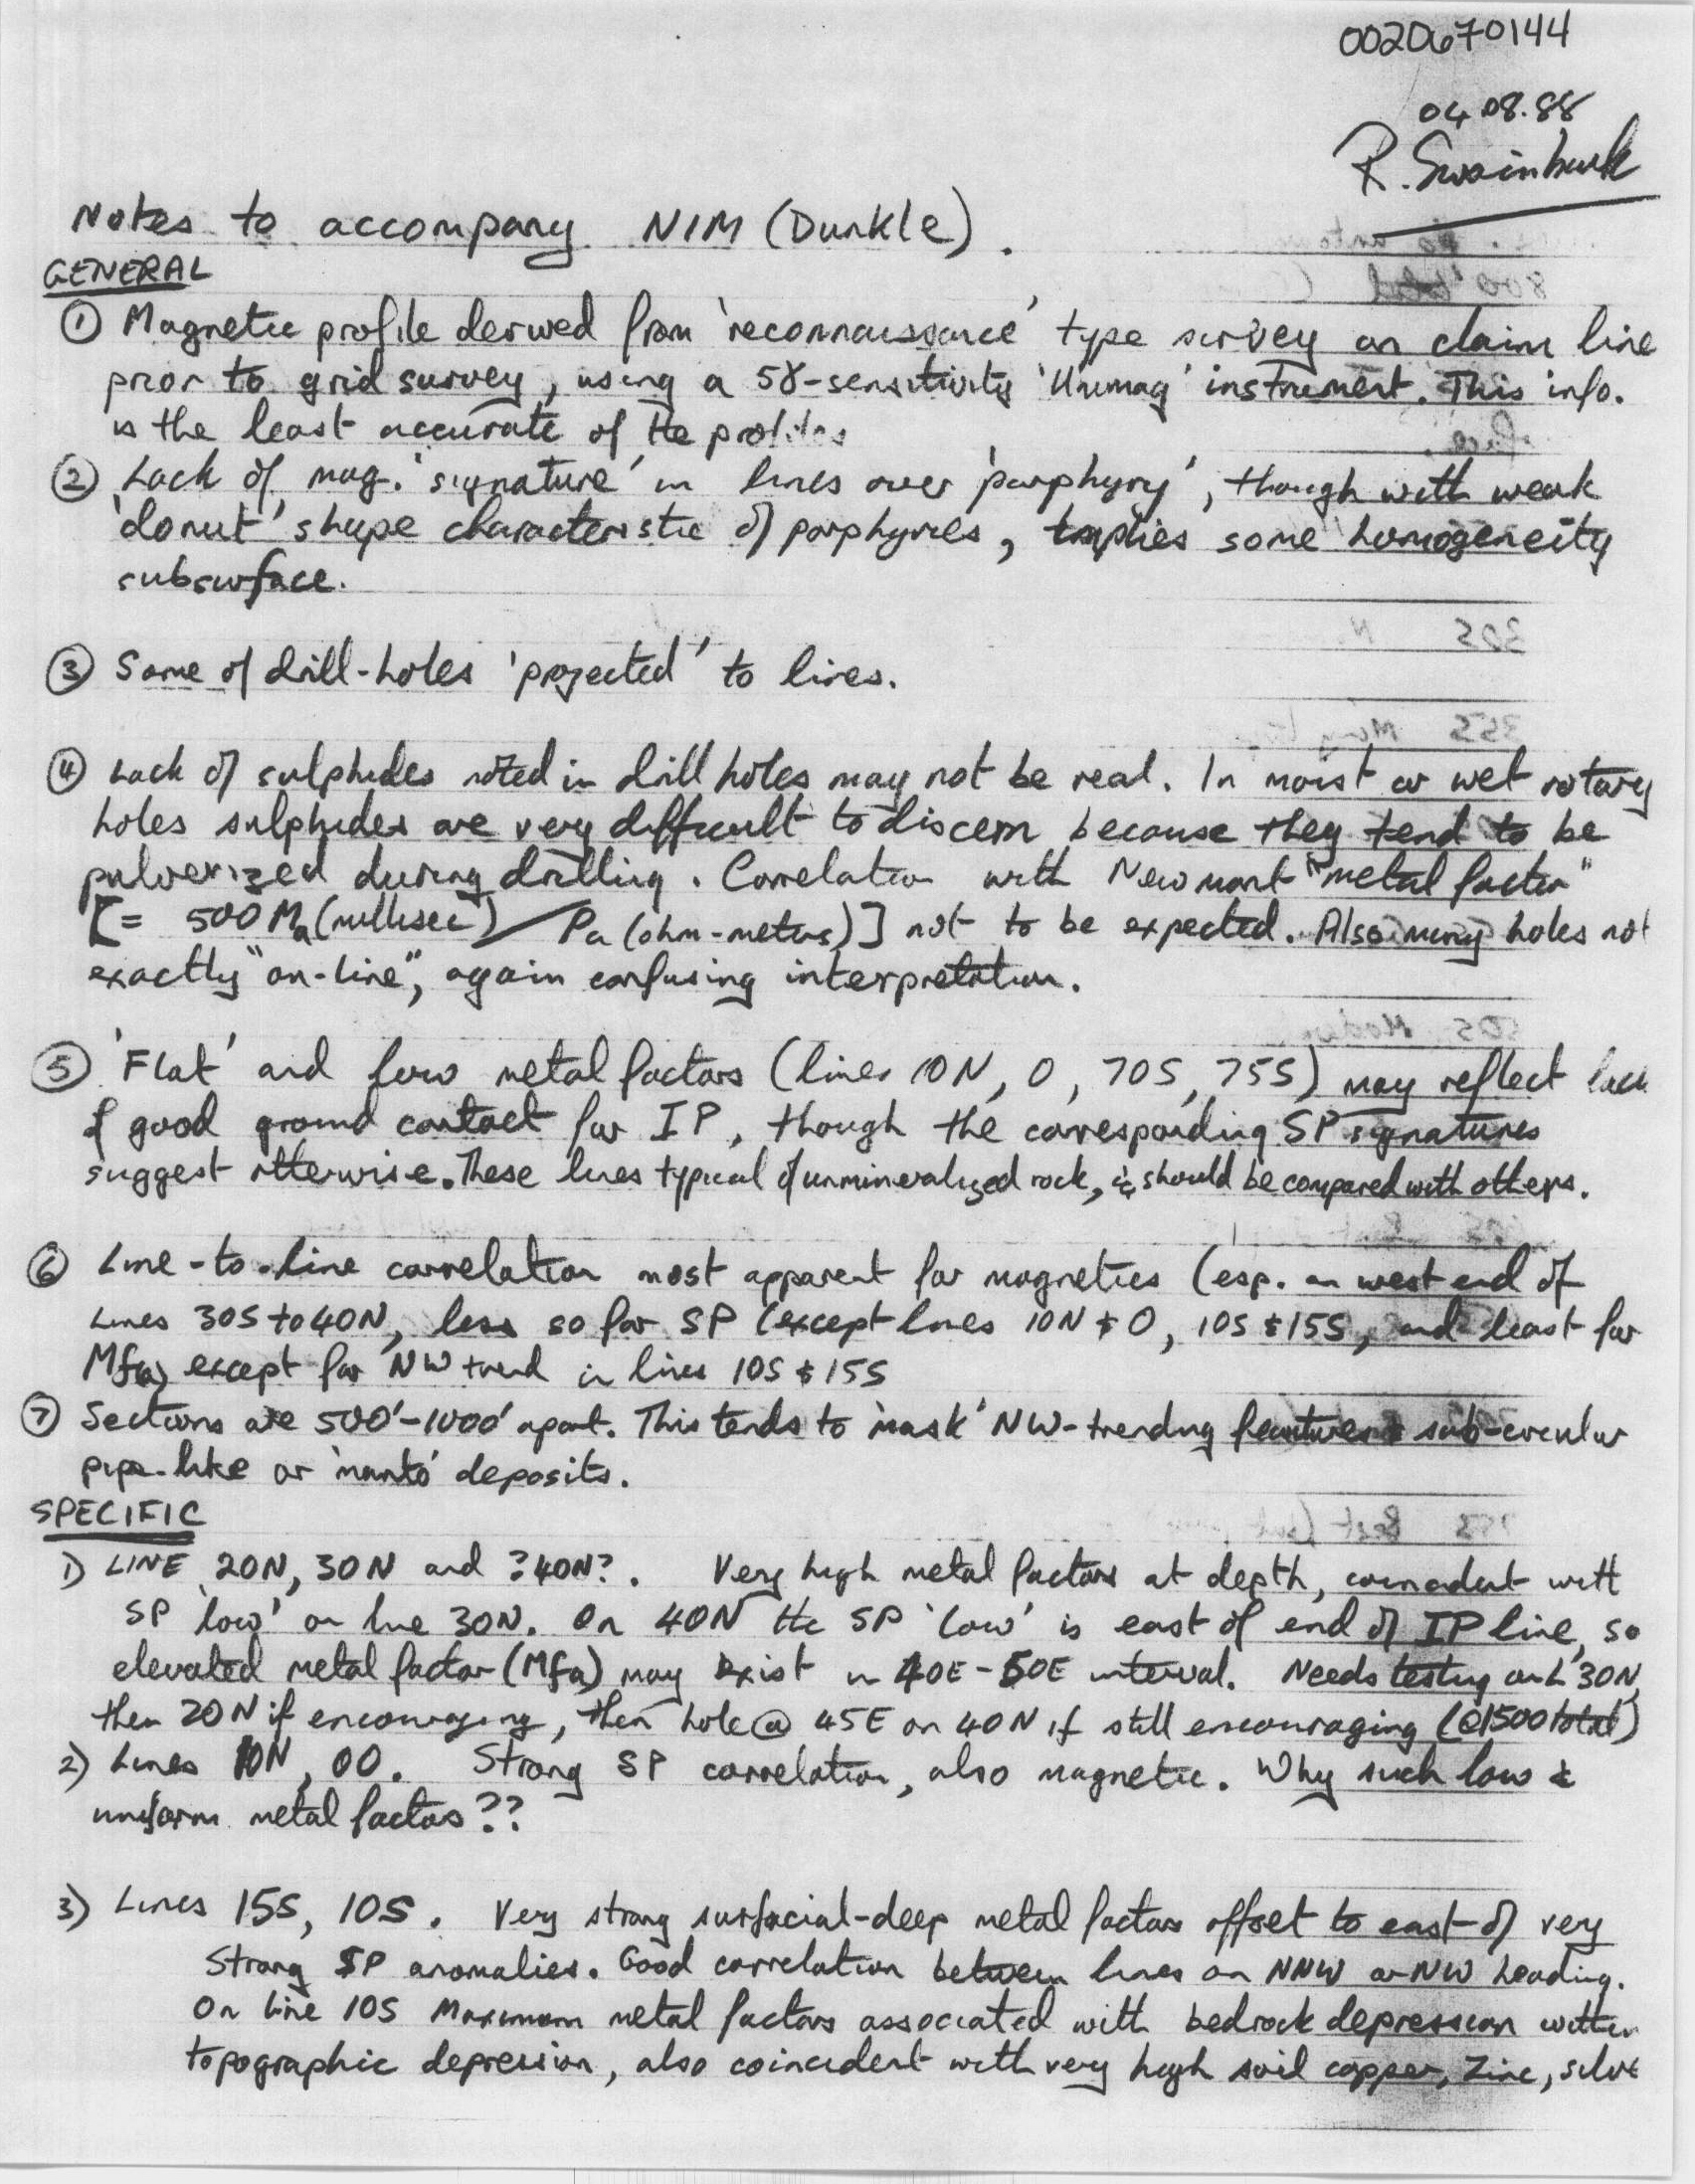 0020670144
04.08.88
R. Swainbank
Notes to accompany NIM (Dunkle).
GENERAL
① Magnetic profile derived from 'reconnaissance' type survey on claim line
prior to grid survey, using a 5γ-sensitivity 'Unimag' instrument. This info.
is the least accurate of the profiles
② Lack of mag. 'signature' in lines over 'porphyry', though with weak
'donut' shape characteristic of porphyries, implies some homogeneity
subsurface.
③ Some of drill-holes 'projected' to lines.
④ Lack of sulphides noted in drill holes may not be real. In moist or wet rotary
holes sulphides are very difficult to discern because they tend to be
pulverized during drilling. Correlation with Newmont "metal factor"
[= 500 Ma (millisec) / Pa (ohm-meters)] not to be expected. Also many holes not
exactly "on-line", again confusing interpretation.
⑤ 'Flat' and low metal factors (lines 10N, 0, 70S, 75S) may reflect lack
of good ground contact for IP, though the corresponding SP signatures
suggest otherwise. These lines typical of unmineralized rock, & should be compared with others.
⑥ Line-to-line correlation most apparent for magnetics (esp. on west end of
Lines 30S to 40N, less so for SP (except lines 10N & 0, 10S & 15S, and least for
Mf(a) except for NW trend in lines 10S & 15S
⑦ Sections are 500'-1000' apart. This tends to 'mask' NW-trending features & sub-circular
pipe-like or 'manto' deposits.
SPECIFIC
1) LINE 20N, 30N and ?40N?. Very high metal factors at depth, coincident with
SP 'low' on line 30N. On 40N the SP 'low' is east of end of IP line, so
elevated metal factor (Mfa) may exist in 40E-50E interval. Needs testing on L30N,
then 20N if encouraging, then hole @ 45E on 40N if still encouraging (@1500 total)
2) Lines 10N, 00. Strong SP correlation, also magnetic. Why such low &
uniform metal factors??
3) Lines 15S, 10S. Very strong surfacial-deep metal factors offset to east of very
Strong SP anomalies. Good correlation between lines on NNW or NW heading.
On line 10S Maximum metal factors associated with bedrock depression within
topographic depression, also coincident with very high soil copper, zinc, silve